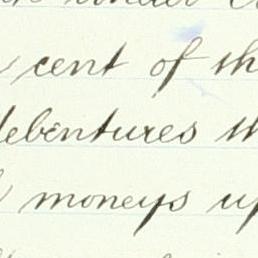 cent of th
debentures th
moneys up